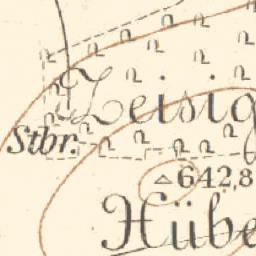 Zeisig
Stbr.
642,8
Hübe